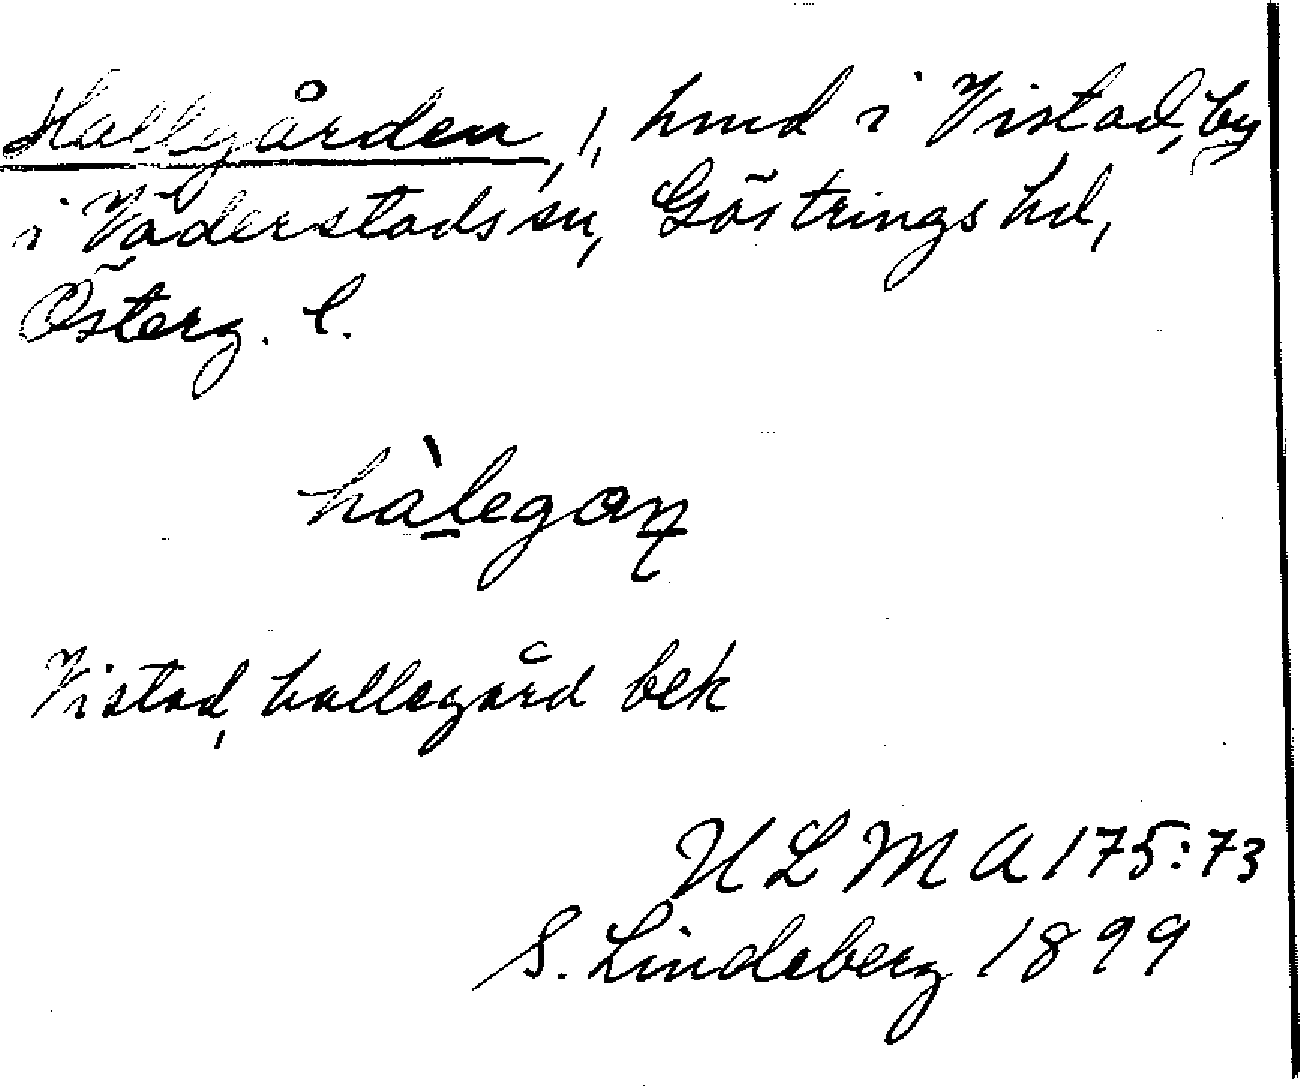 Hallgården, 1, hmd i Vistad, by
i Väderstads sn, Göstrings hd,
Österg. l.
hàlegan
Vistad, hallegård bek
ULMA 175:73
S. Lindeberg 1899